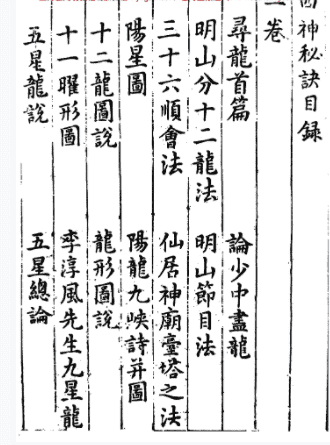 神秘訣目錄
卷
尋龍首篇 論少中盡龍
明山分十二龍法 明山節目法
三十六順會法 仙居神廟臺塔之法
陽星圖 陽龍九峽詩并圖
十二龍圖說 龍形圖說
十一曜形圖 李淳風先生九星龍
五星龍說 五星總論